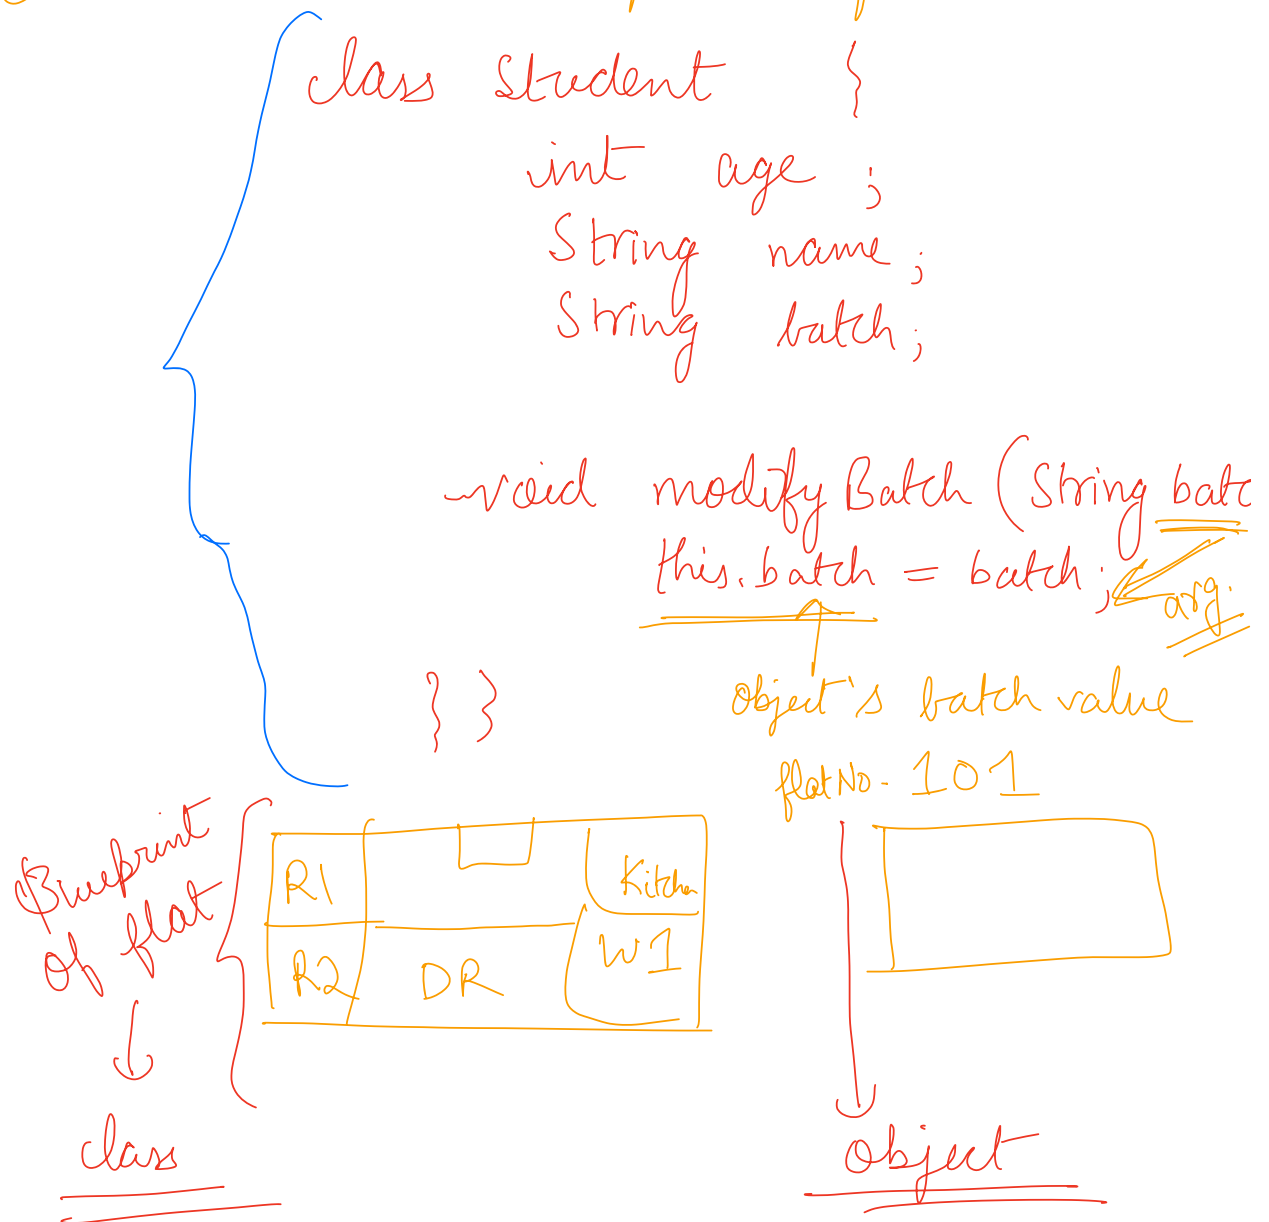 class Student {
int age ;
String name ;
String batch ;
void modifyBatch (String batc
this.batch = batch ;
arg.
} }
object's batch value
flatNo - 101
Blueprint
of flat
R1
Kitchen
R2
DR
W1
class
object